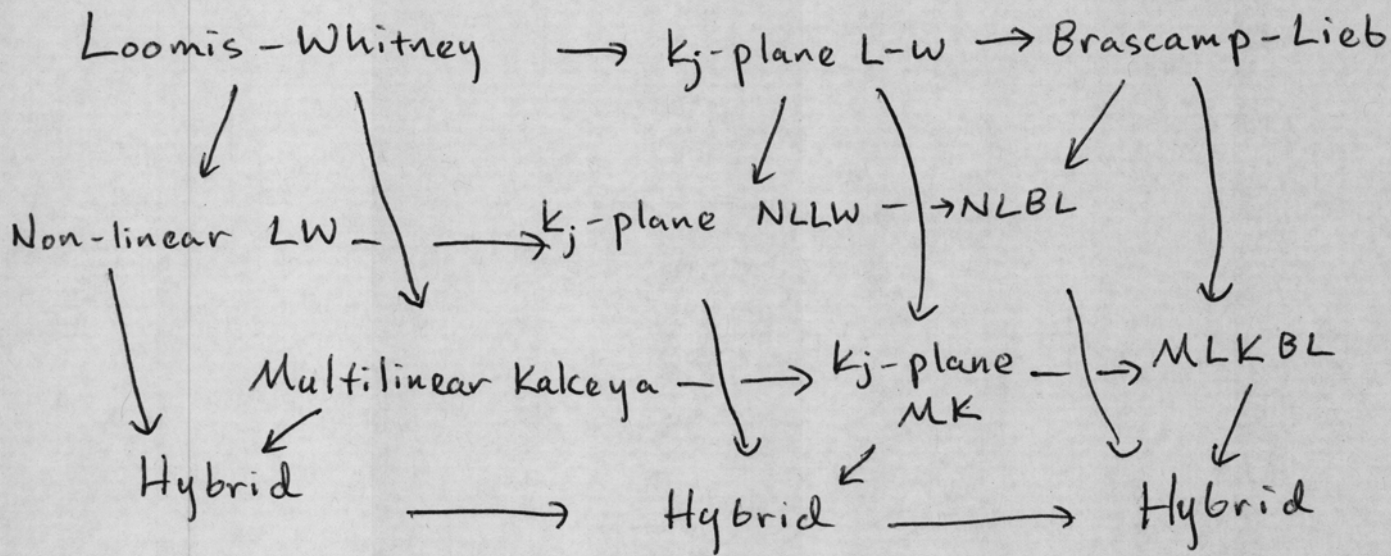 Loomis-Whitney → kj-plane L-W → Brascamp-Lieb
Non-linear LW → kj-plane NLLW → NLBL
Multilinear Kakeya → kj-plane MK → MLKBL
Hybrid → Hybrid → Hybrid